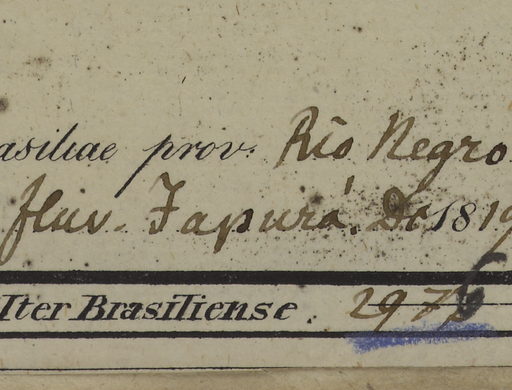 asiliae prov. Rio Negro.
fluv. Japurá. Dc 1819
Iter Brasiliense. 2976